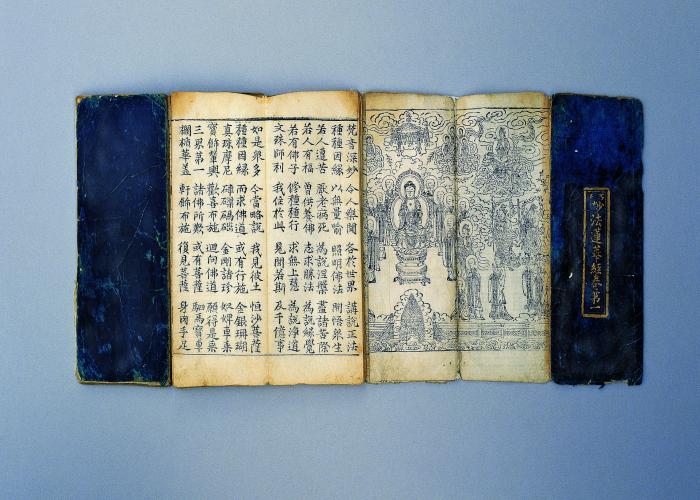 妙法蓮華經卷第一
梵音深妙 令人樂聞 各於世界 講說正法
種種因緣 以無量喻 照明佛法 開悟衆生
若人遭苦 厭老病死 為說涅槃 盡諸苦際
若人有福 曾供養佛 志求勝法 為說緣覺
若有佛子 修種種行 求無上慧 為說淨道
文殊師利 我住於此 見聞若斯 及千億事
如是衆多 今當略說 我見彼土 恒沙菩薩
種種因緣 而求佛道 或有行施 金銀珊瑚
真珠摩尼 硨磲碼碯 金剛諸珍 奴婢車乘
寶飾輦輿 歡喜布施 迴向佛道 願得是乘
三界第一 諸佛所歎 或有菩薩 駟馬寶車
欄楯華蓋 軒飾布施 復見菩薩 身肉手足